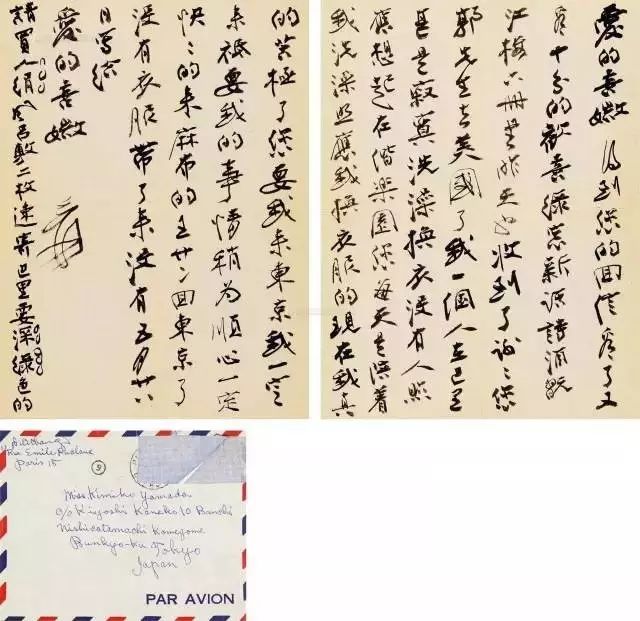 愛的喜嫩 得到您的回信看了又
看十分的歡喜綠窗新話詩酒
江梅六冊是昨天也收到了謝謝您
郭先生去英國了我一個人在巴里
甚是寂寞洗澡換衣沒有人照
應想起在偕樂園您每天是陪着
我洗澡照應我換衣服的現在我真
的苦極了您要我來東京我一定
來祗要我的事情稍為順心一定
快〻的來麻布的王廿二回東京了
沒有衣服帶了來沒有五月廿八
日寫給
愛的喜嫩
請買人絹二枚速寄巴里要深綠色的
Rue Emile
Paris 15
9
Miss Kimiko Yamada
c/o Kiyoshi Kaneko 10 Banchi
Nishicatamachi Komegome
Bunkyo-ku Tokyo
Japan
PAR AVION